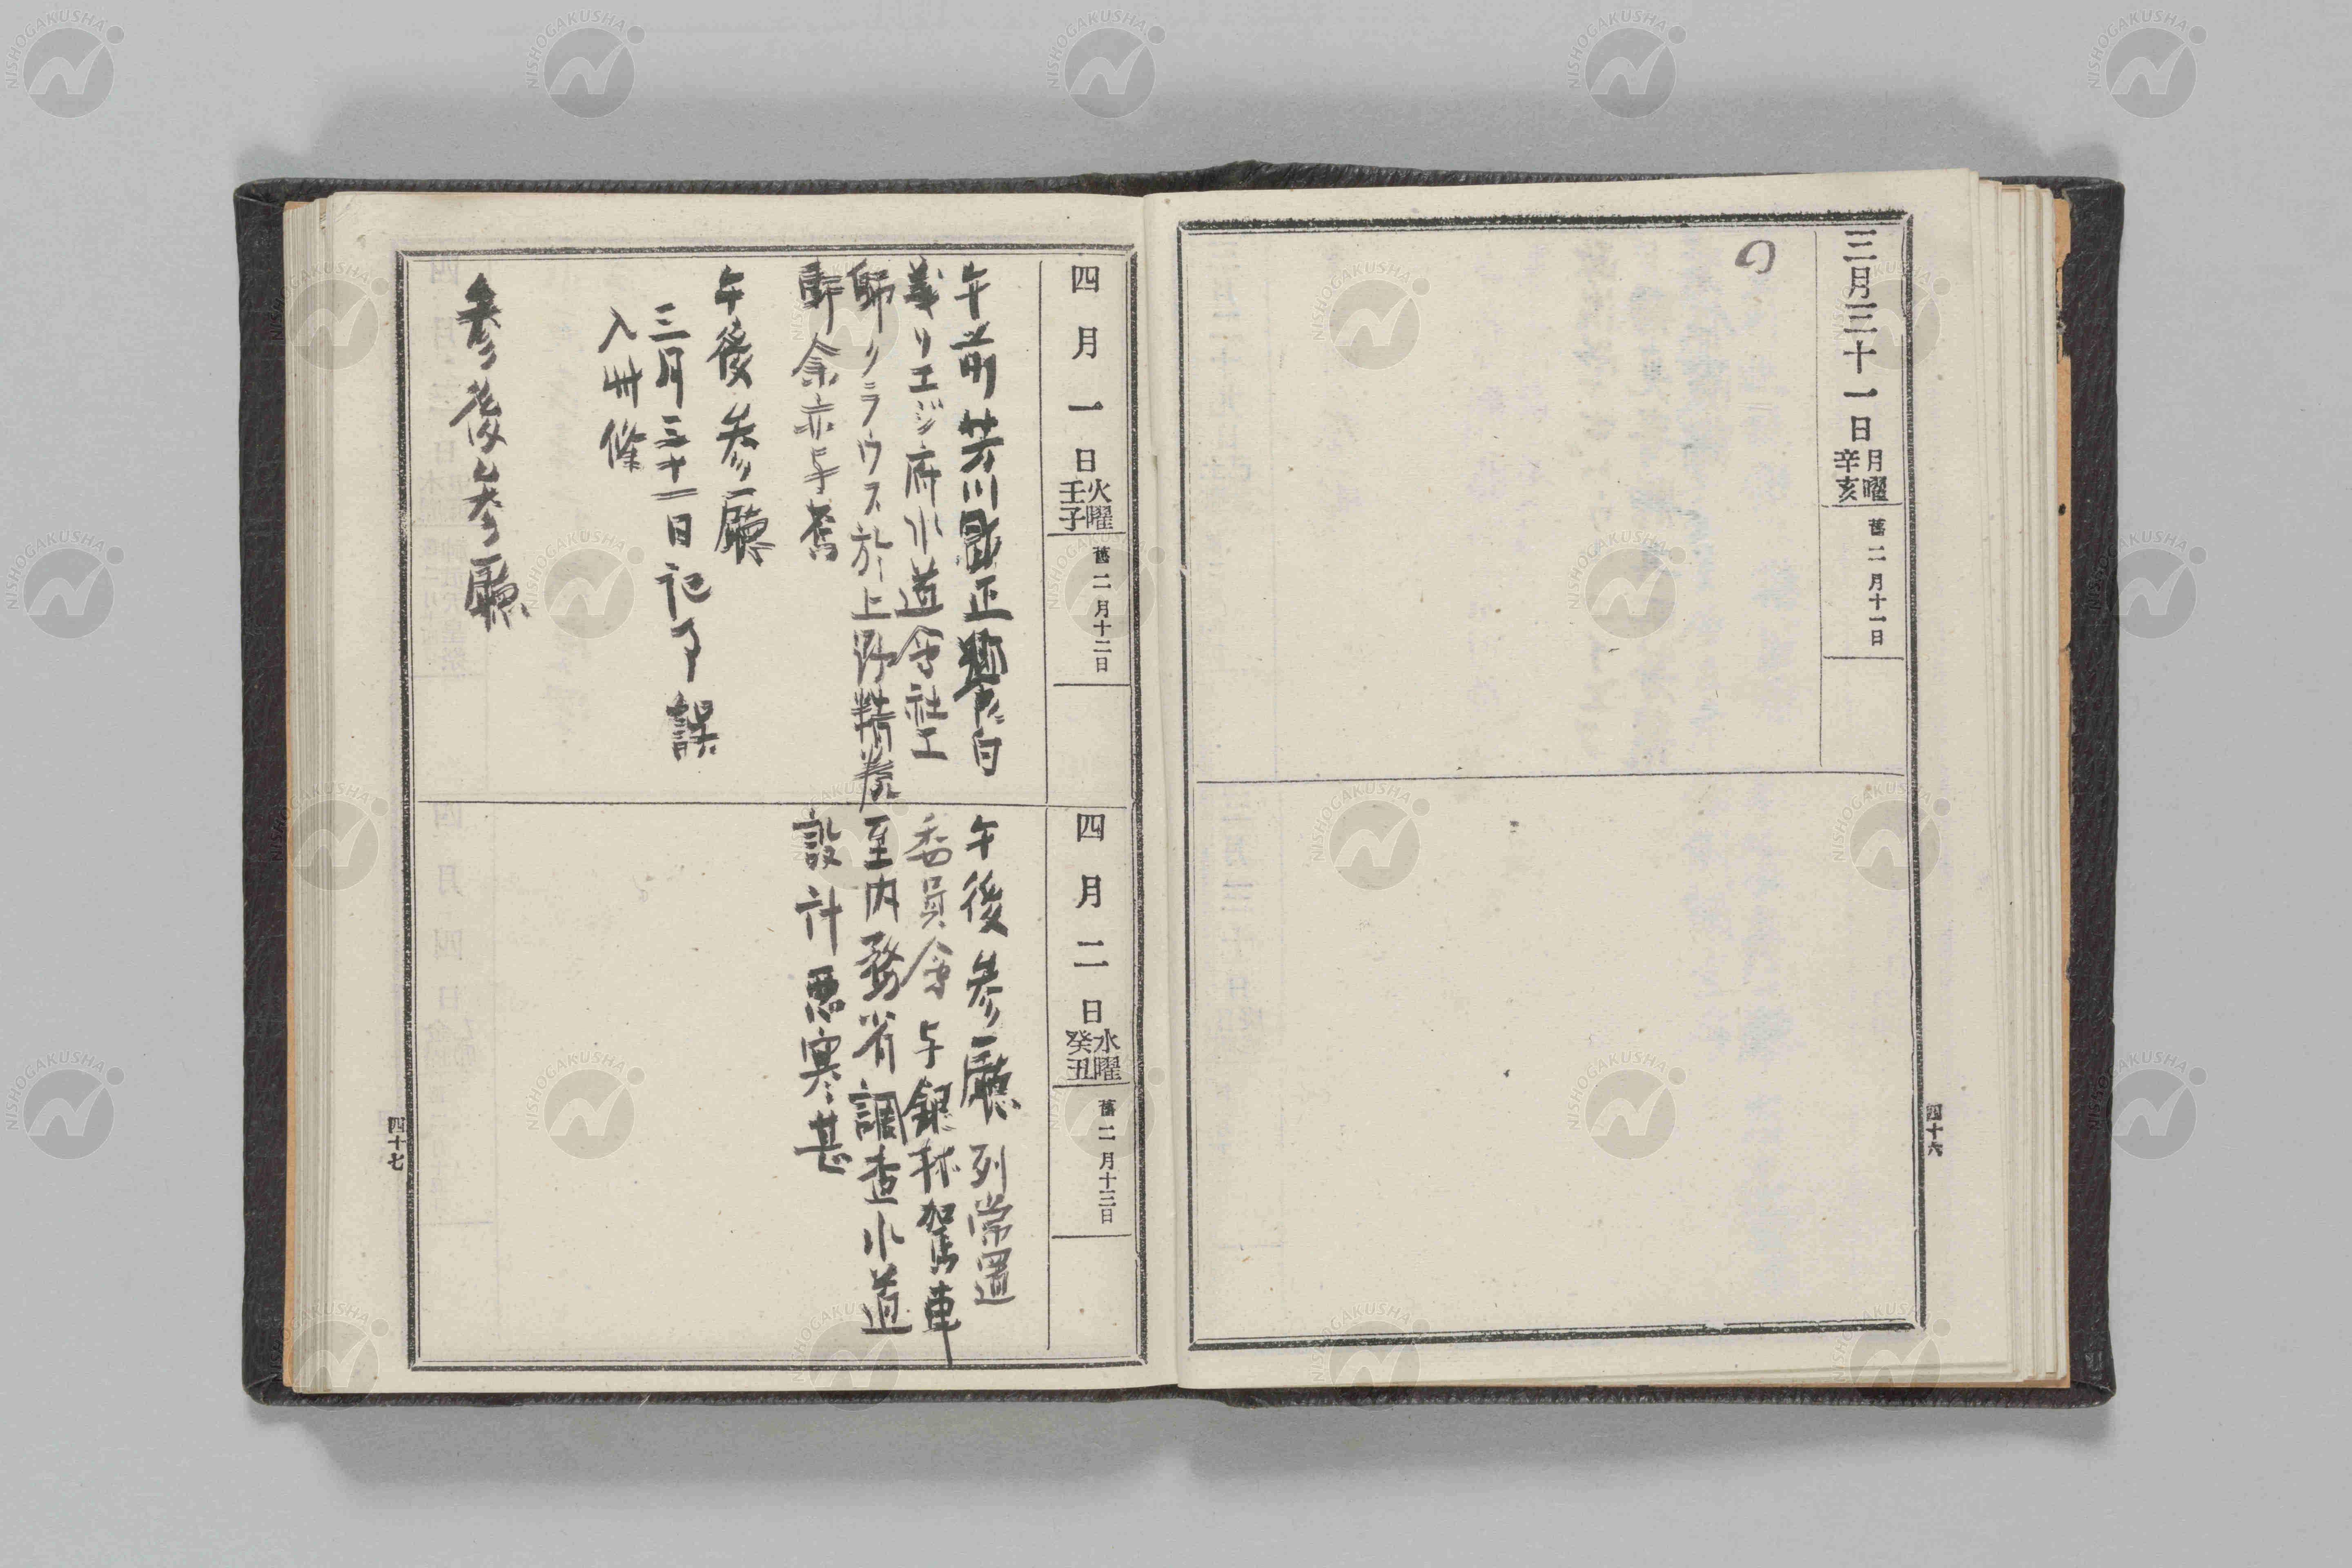 三月三十一日
月曜
辛亥
舊二月十一日
四十六
四月一日
火曜
壬子
舊二月十二日
午前芳川顕正 白
義リエジ府水道会社工
師クニラウス於上野精養
軒余亦与焉
午後参廳
三月三十一日記事誤
入此條
参後参廳
四月二日
水曜
癸丑
舊二月十三日
午後参廳列常置
委員会与銀林駕車
至内務省調査水道
設計悪寒甚
四十七
NISHOGAKUSHA